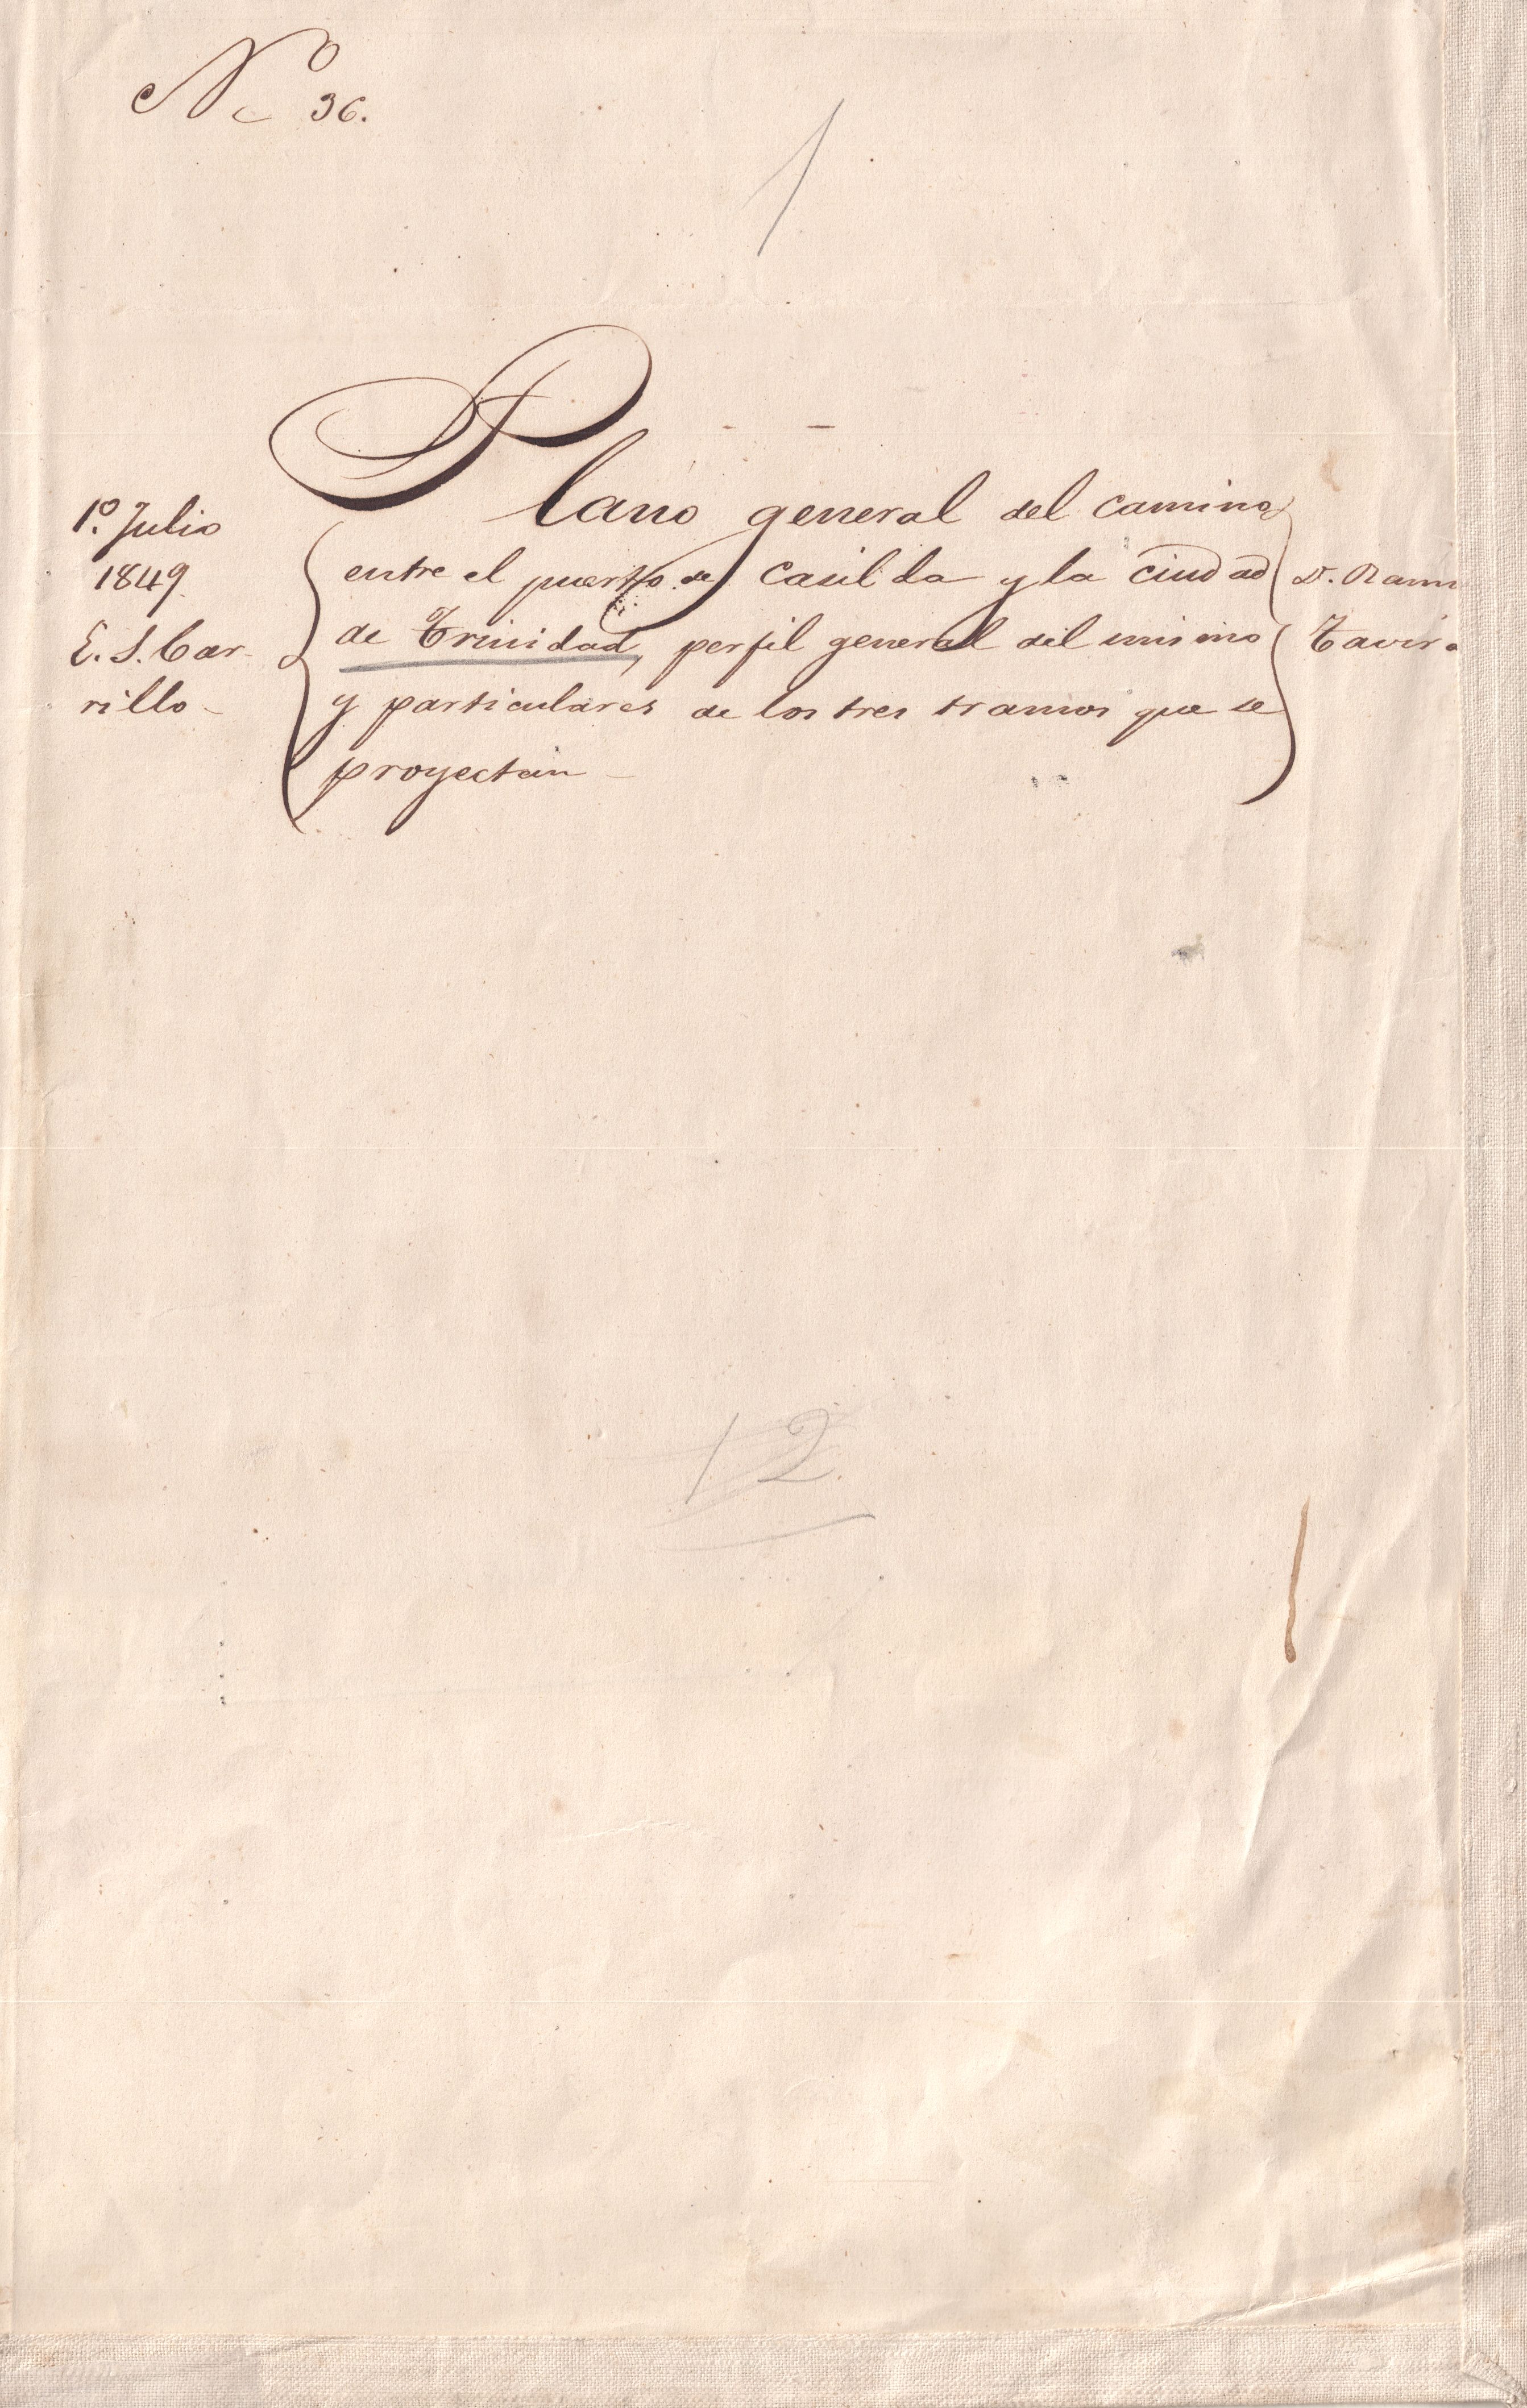 Nº 36.
1
Plano general del camino
entre el puerto de Casilda y la ciudad
de Trinidad, perfil general del mismo
y particulares de los tres tramos que se
proyectan
1º. Julio
1849
E. S. Car-
rillo
D. Ram
Tavira
12.